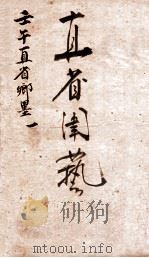 直省闈藝
壬午直省鄉墨一
www.toumu.info